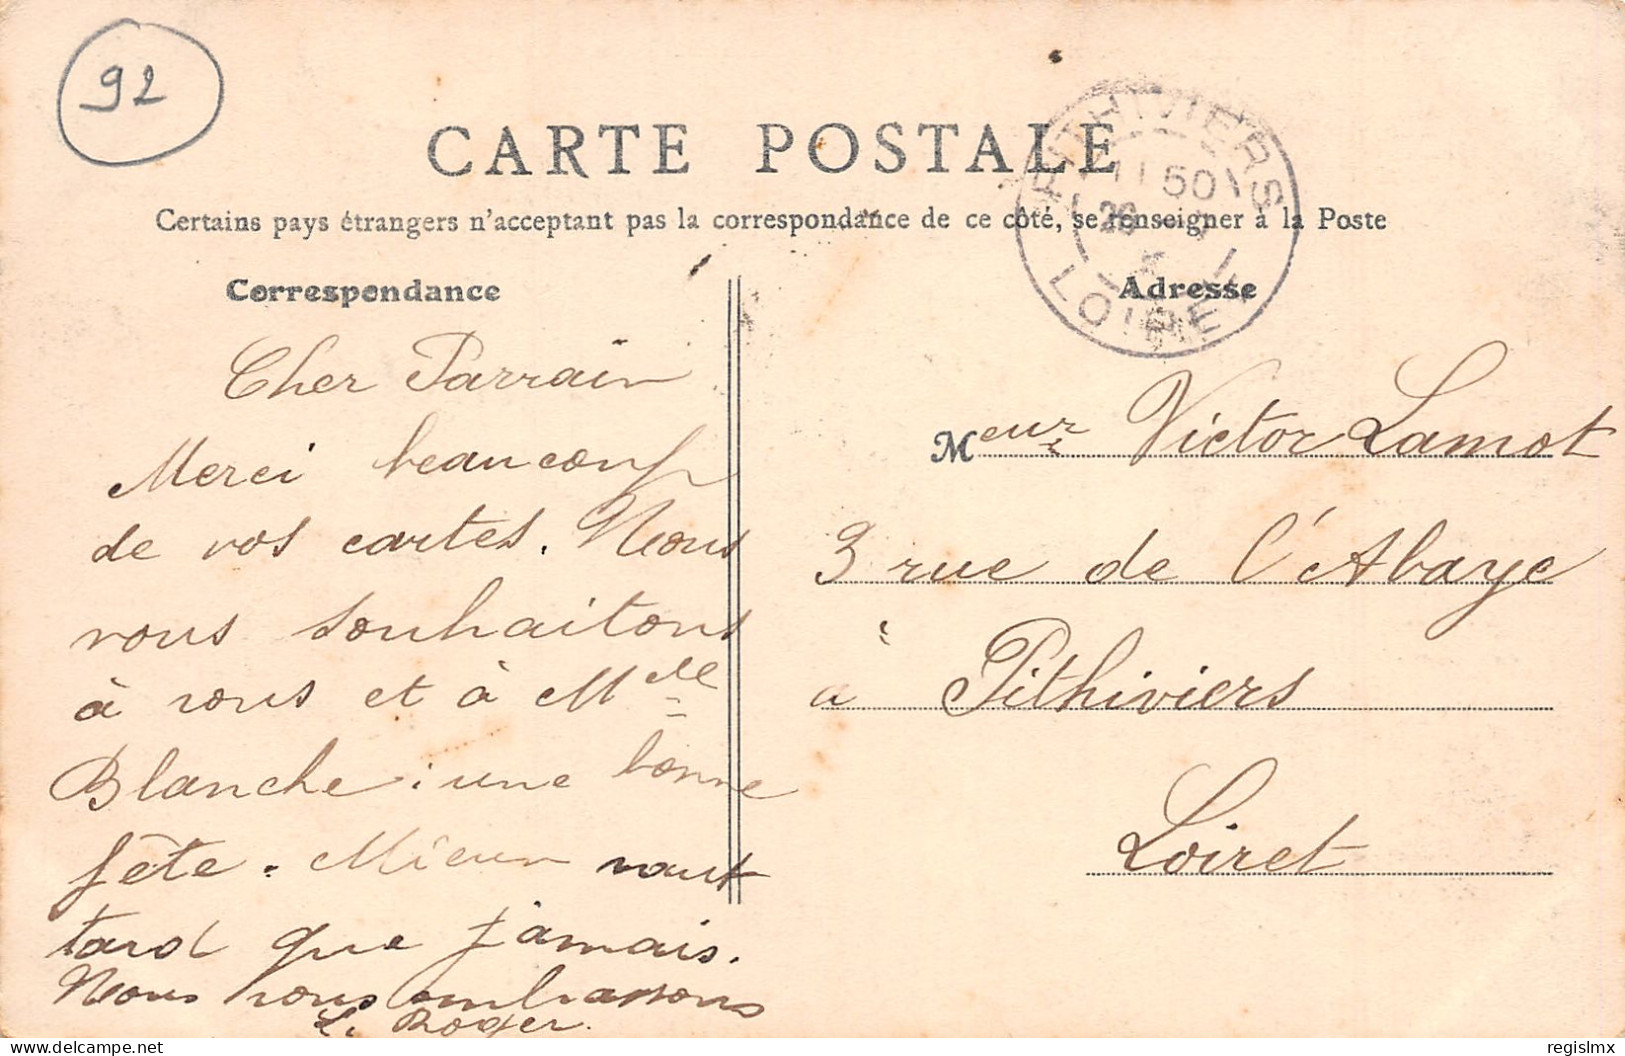 92
CARTE POSTALE
Certains pays étrangers n'acceptant pas la correspondance de ce côté, se renseigner à la Poste
Correspondance
Cher Parrain
Merci beaucoup
de vos cartes. Nous
vous souhaitons
à vous et à Melle
Blanche : une bonne
fête. Mieux vaut
tard que jamais.
Nous vous embrassons
L. Roger.
PITHIVIERS
11 50
LOIRET
Adresse
Meur Victor Lamot
3 rue de l'Abaye
à Pithiviers
Loiret
delcampe.net
regislmx